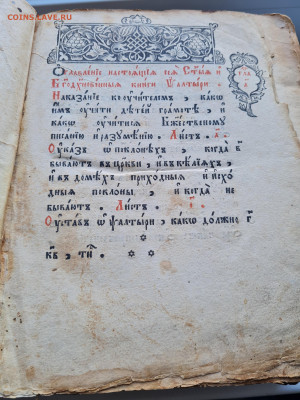 COINS.SU
Оглавленіе настоящія сея Ст҃ыя и
Бг҃одх҃новенныя книги Ѱалтыри.
гла
в҃
Наказаніе ко ѹчителемъ, какѡ
имъ ѹчити дѣтей грамотѣ, и
какѡ ѹчитисѧ Бжественому
писанію и разумѣнію. Листъ
Ѹказъ ѡ поклонѣхъ, когда
бываютъ въ цр҃кви, и въ кѣлїѧхъ,
и въ домѣхъ приходныѧ и исхо
дныѧ поклоны. и когда не
бываютъ. Листъ
Ѹставъ ѡ ѱалтыри, какѡ должно г҃